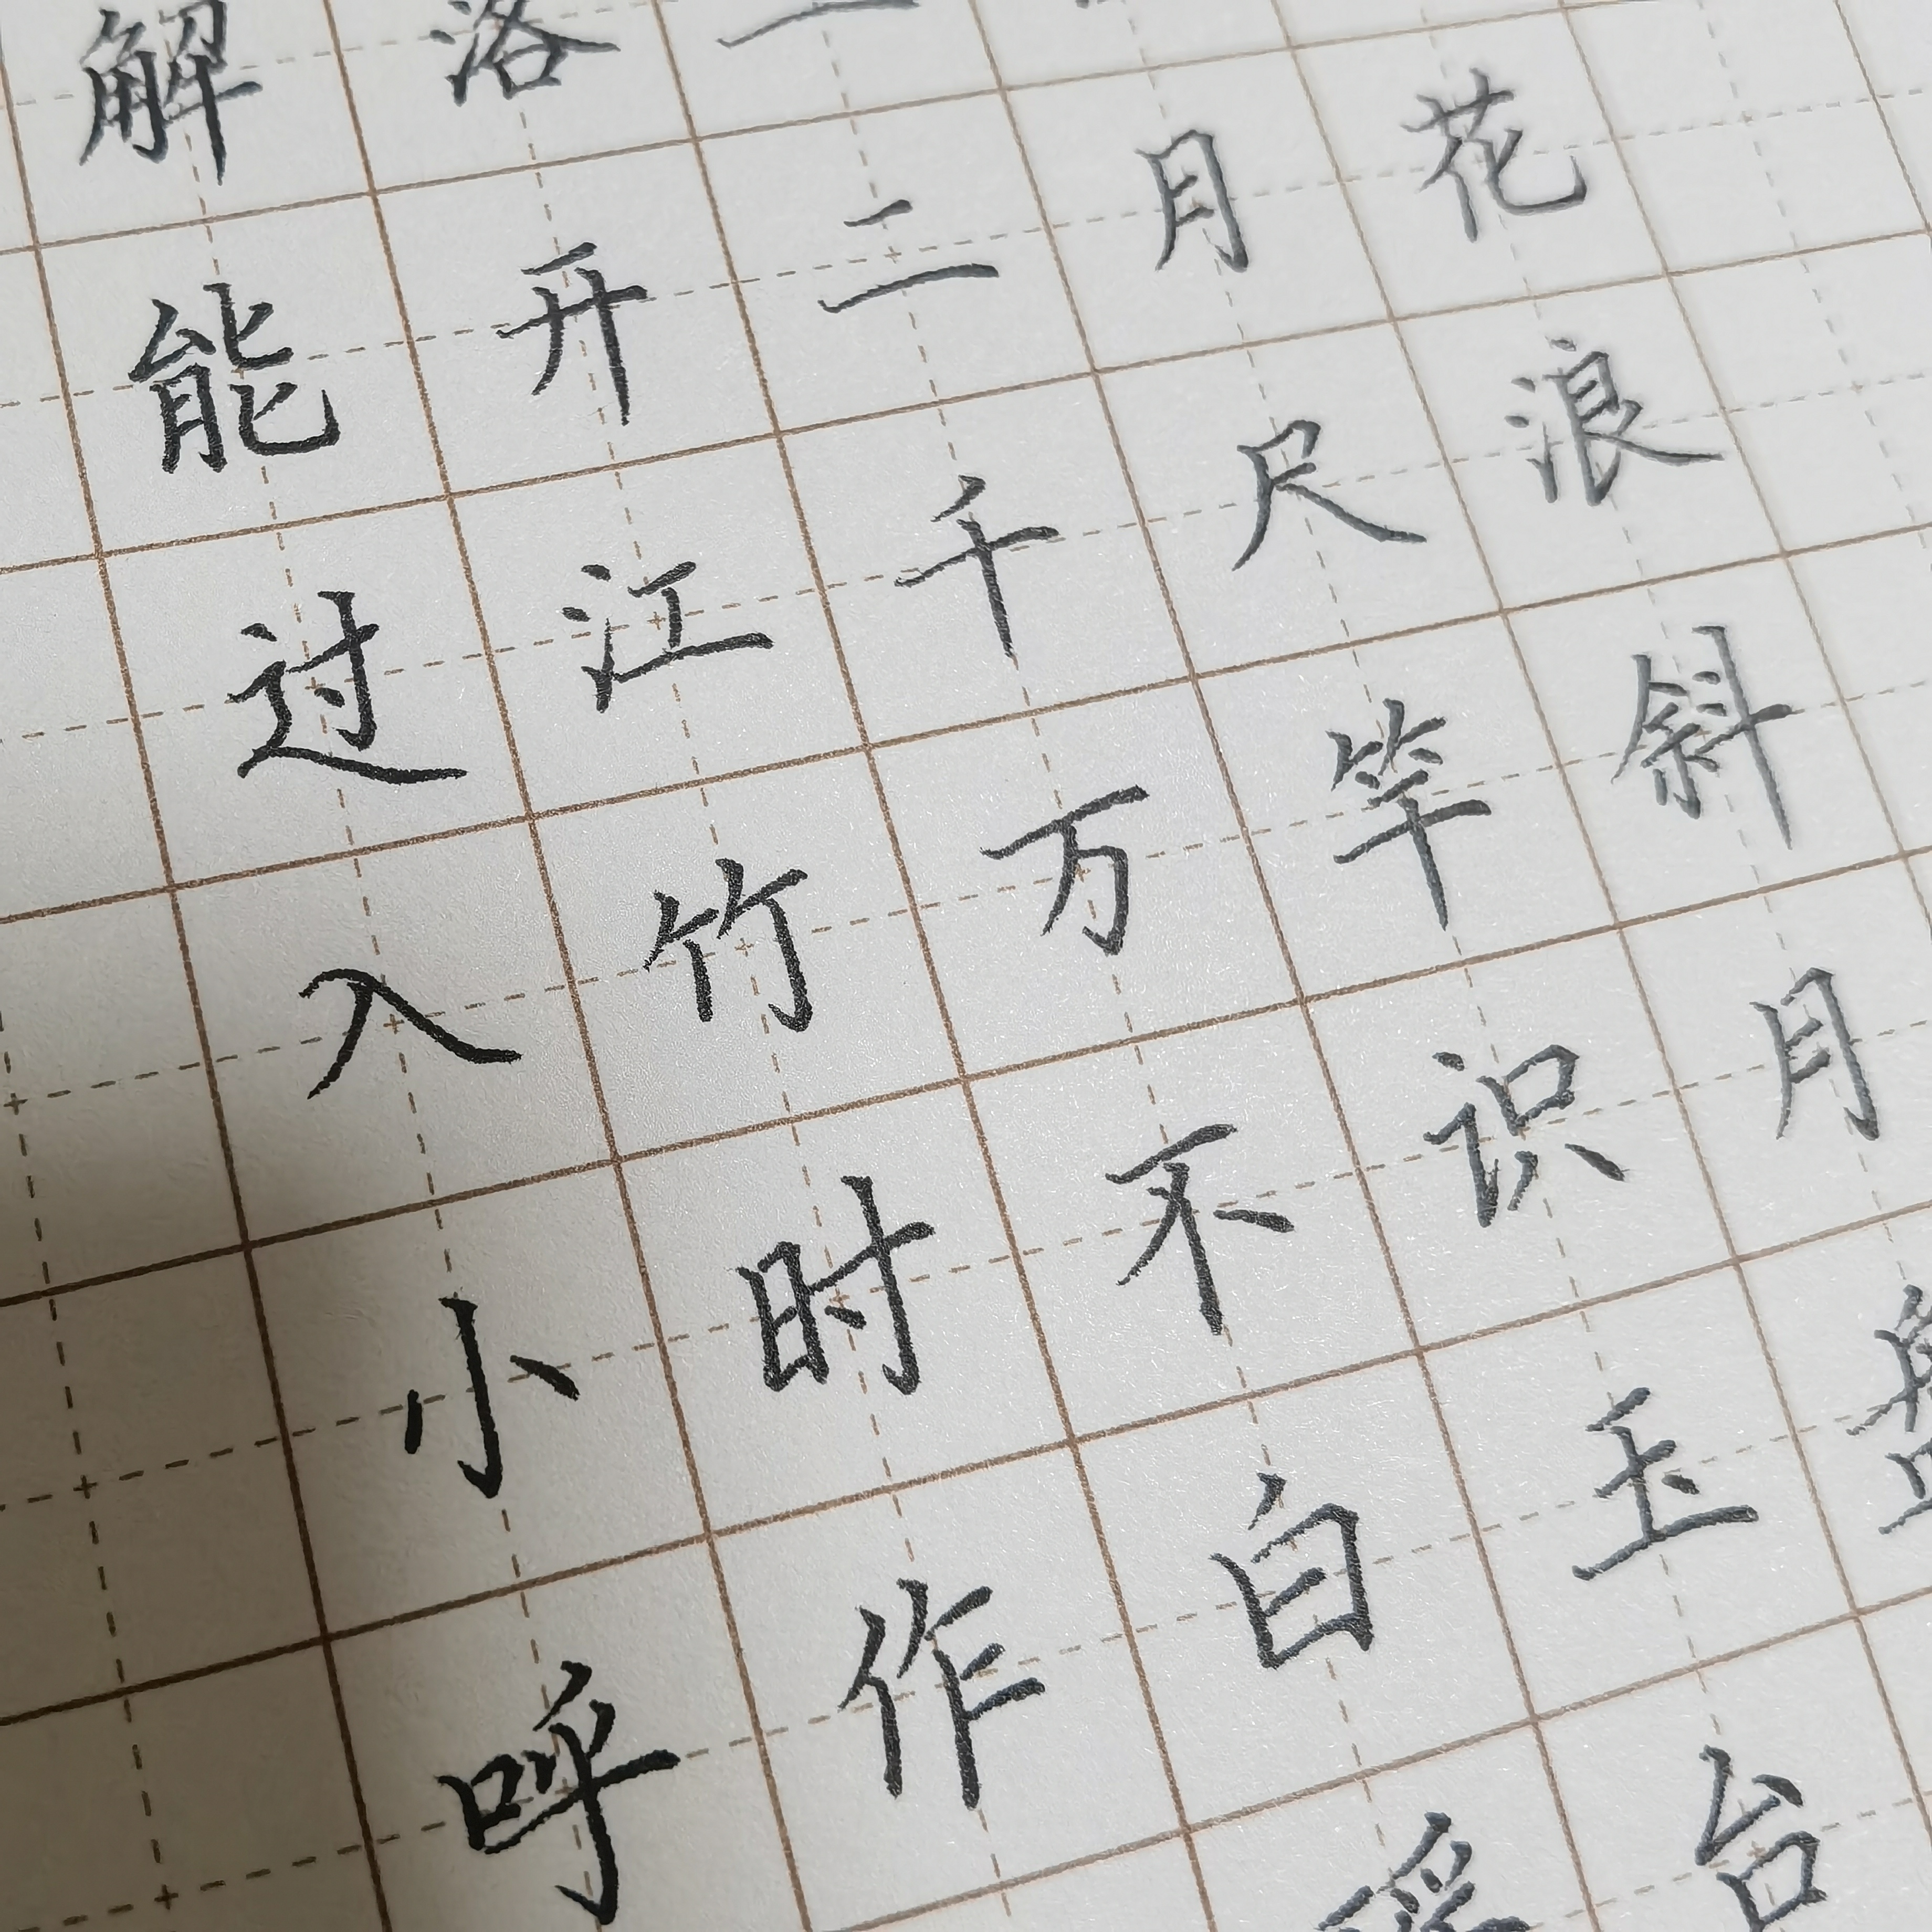 解落
能开二月花
过江千尺浪
入竹万竿斜
小时不识月
呼作白玉盘
瑶台